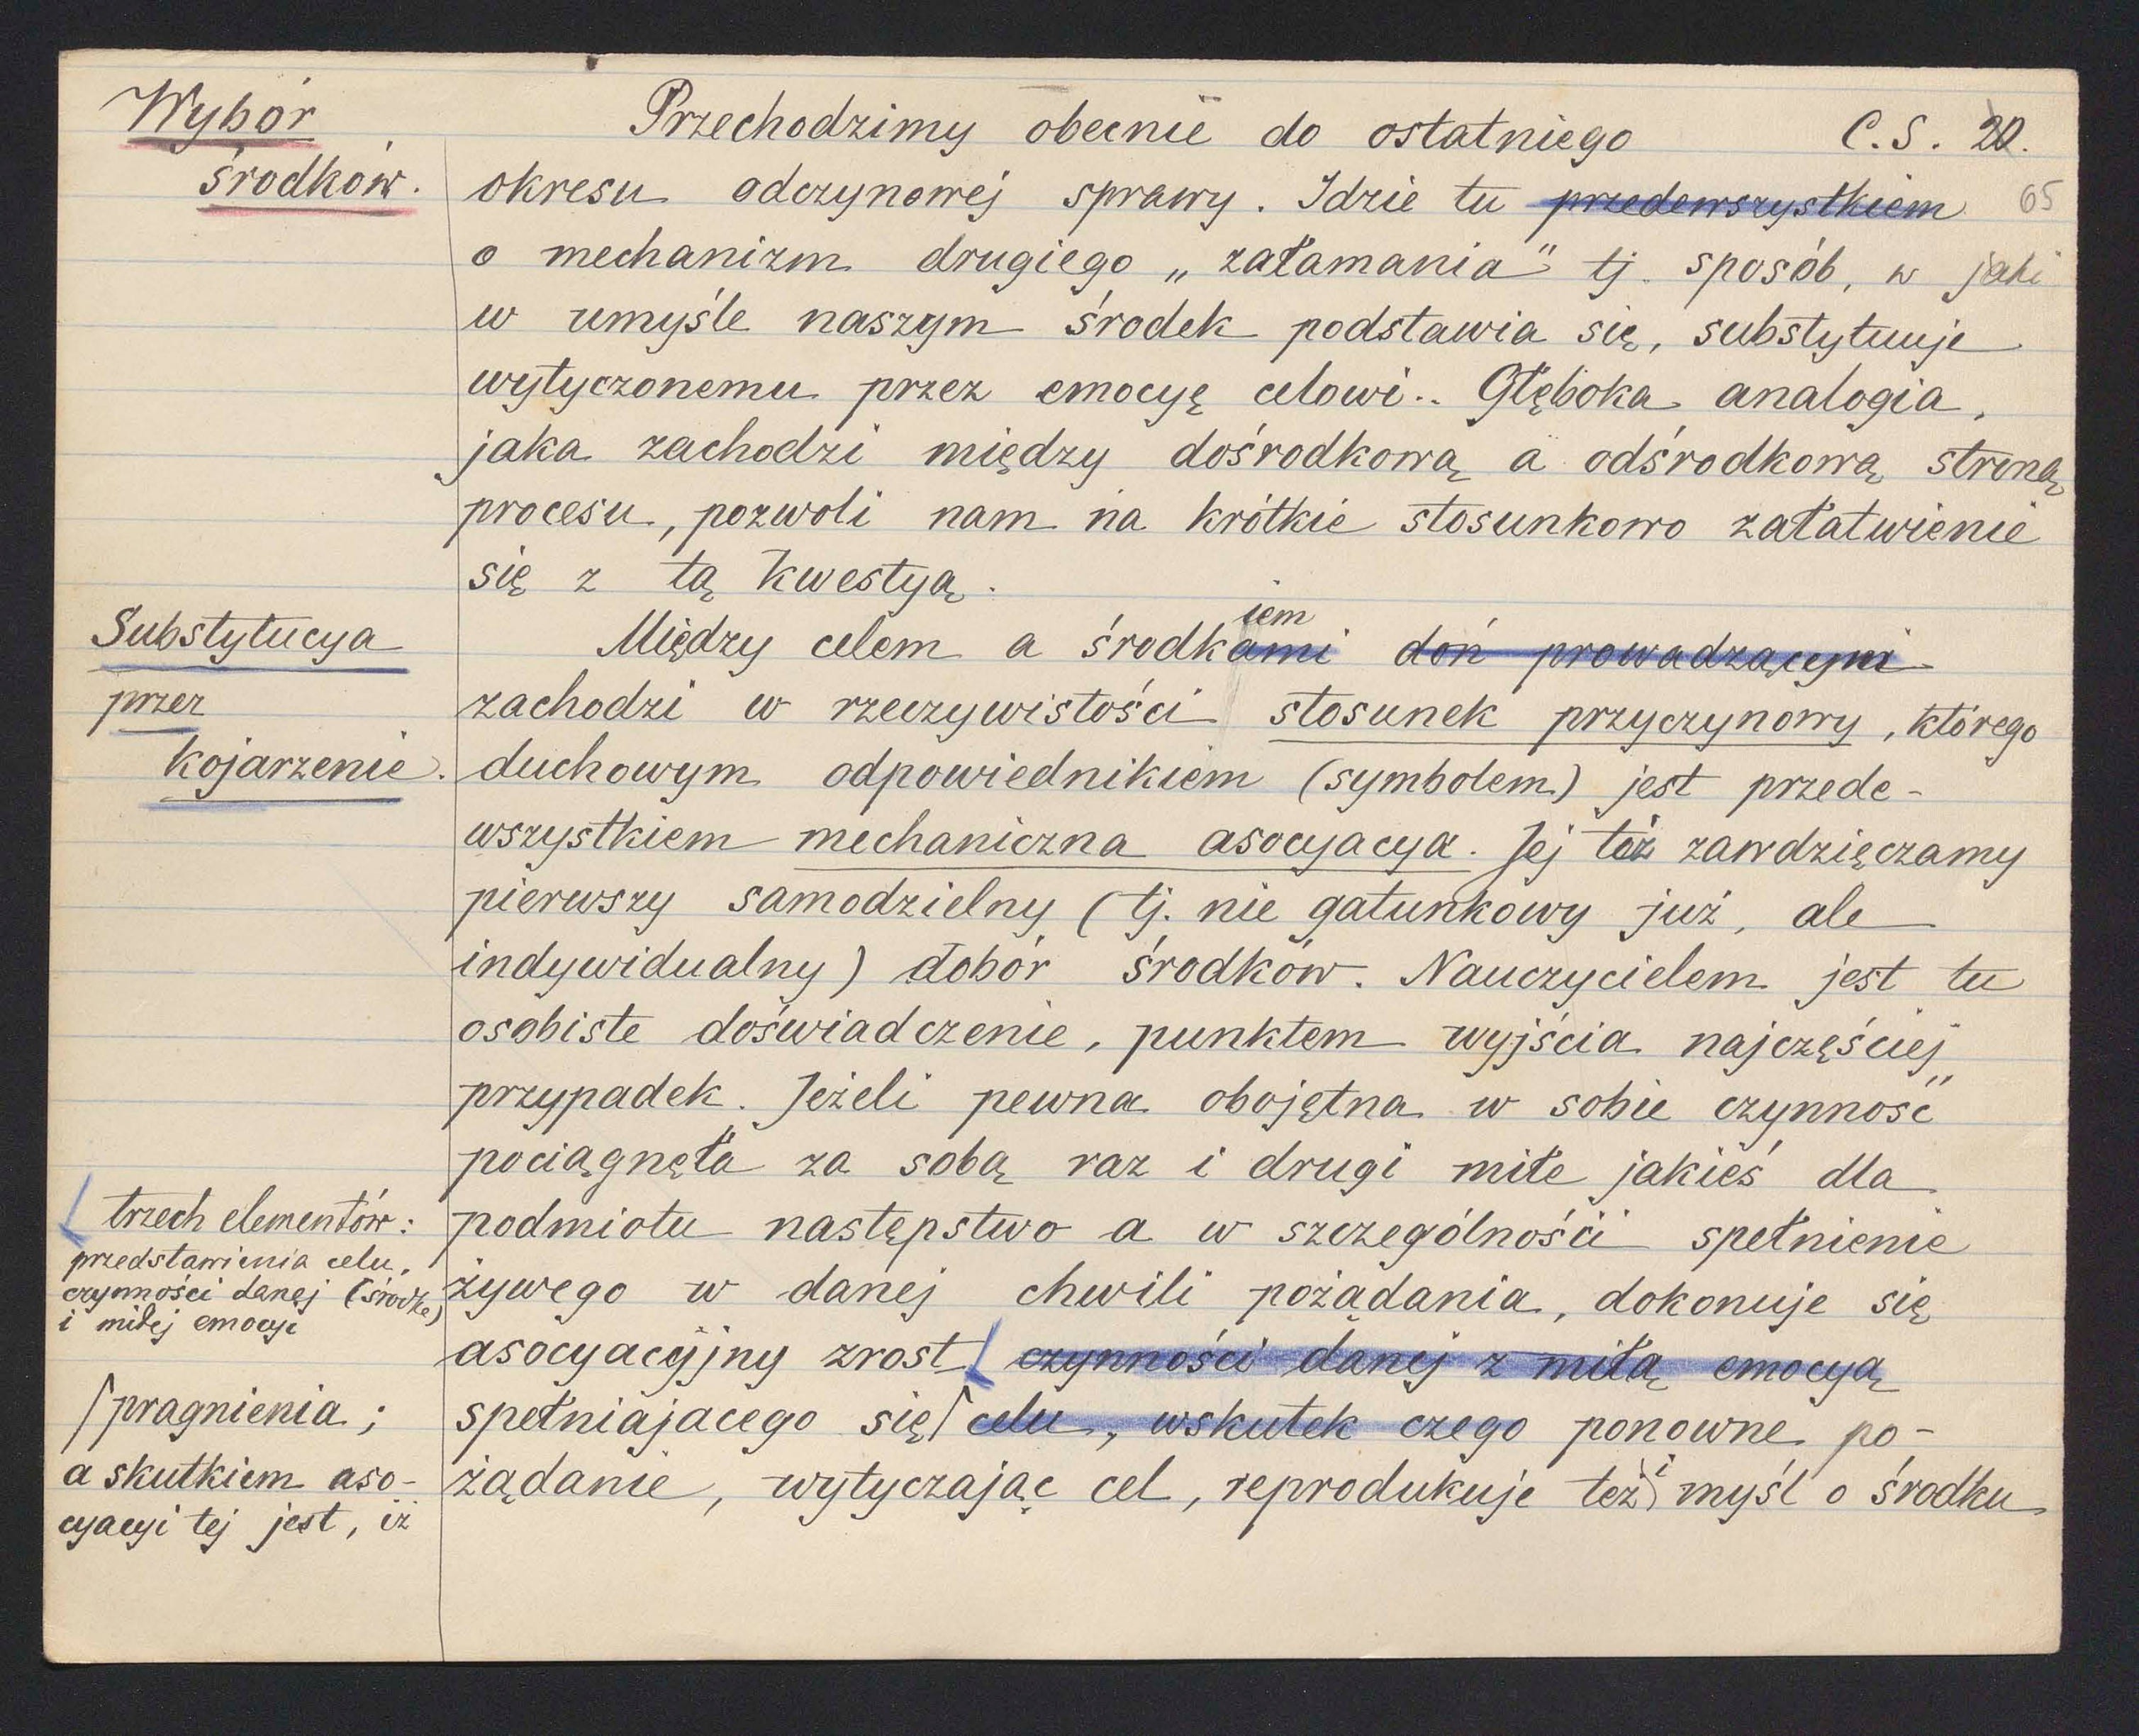 Wybór
środków.
Przechodzimy obecnie do ostatniego
C.S. 20.
65
okresu odczynowej sprawy. Idzie tu przedewszystkiem
o mechanizm drugiego „załamania" tj. sposób, w jaki
w umyśle naszym środek podstawia się, substytuuje
wytyczonemu przez emocyę celowi.. Głęboka analogia,
jaka zachodzi między dośrodkową a odśrodkową stroną
procesu, pozwoli nam na krótkie stosunkowo załatwienie
się z tą kwestyą.
Substytucya
przez
kojarzenie.
iem
Między celem a środkami doń prowadzącymi
zachodzi w rzeczywistości stosunek przyczynowy, którego
duchowym odpowiednikiem (symbolem) jest przede-
wszystkiem mechaniczna asocyacya. Jej też zawdzięczamy
pierwszy samodzielny (tj. nie gatunkowy już, ale
indywidualny) dobór środków. Nauczycielem jest tu
osobiste doświadczenie, punktem wyjścia najczęściej
przypadek. Jeżeli pewna obojętna w sobie czynność
pociągnęła za sobą raz i drugi miłe jakieś dla
podmiotu następstwo a w szczególności spełnienie
żywego w danej chwili pożądania, dokonuje się
asocyacyjny zrost czynności danej z miłą emocyą
spełniajacego się celu, wskutek czego ponowne po-
żądanie, wytyczając cel, reprodukuje też i myśl o środku
trzech elementów:
przedstawienia celu,
czynności danej (środka)
i miłej emocyi
pragnienia;
a skutkiem aso-
cyacyi tej jest, iż